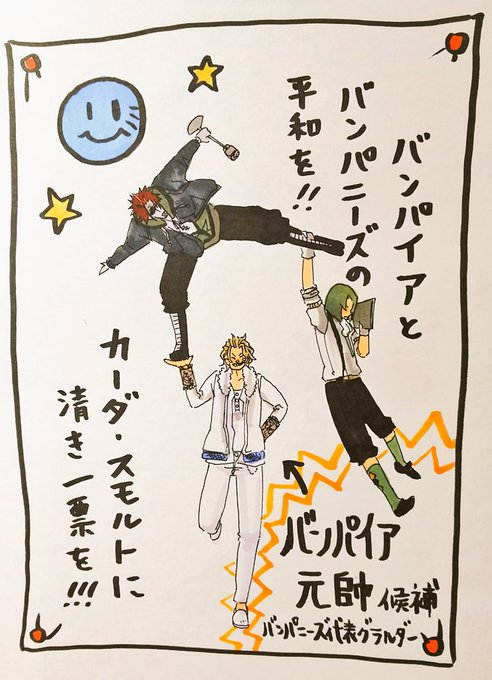 バンパイアと
バンパニーズの
平和を!!
カーダ・スモルトに
清き一票を!!!
バンパイア
元帥 候補
バンパニーズ代表グラルダー